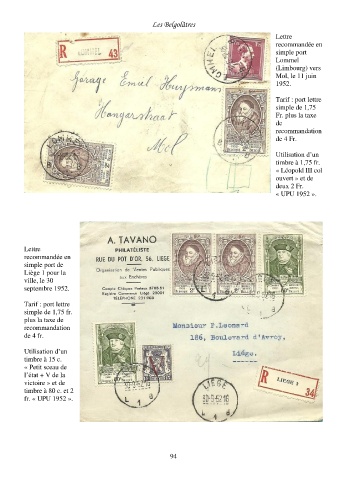 Les Belgolâtres
Lettre
recommandée en
simple port
Lommel
(Limbourg) vers
Mol, le 11 juin
1952.
Tarif : port lettre
simple de 1,75
Fr. plus la taxe
de
recommandation
de 4 Fr.
Utilisation d'un
timbre à 1,75 fr.
« Léopold III col
ouvert » et de
deux 2 Fr.
« UPU 1952 ».
R
LOMMEL
43
LOMMEL
Garage Emiel Huysmans
Hangarstraat
Mol
Lettre
recommandée en
simple port de
Liège 1 pour la
ville, le 30
septembre 1952.
Tarif : port lettre
simple de 1,75 fr.
plus la taxe de
recommandation
de 4 fr.
Utilisation d'un
timbre à 15 c.
« Petit sceau de
l'état » « V de la
victoire » et de
timbre à 80 c. et 2
fr. « UPU 1952 ».
A. TAVANO
PHILATÉLISTE
RUE DU POT D'OR, 56, LIEGE
Organisation de Ventes Publiques
aux Enchères
Monsieur F.Leonard
186, Boulevard d'Avroy,
Liége.
LIEGE
R
LIEGE 1
34
94